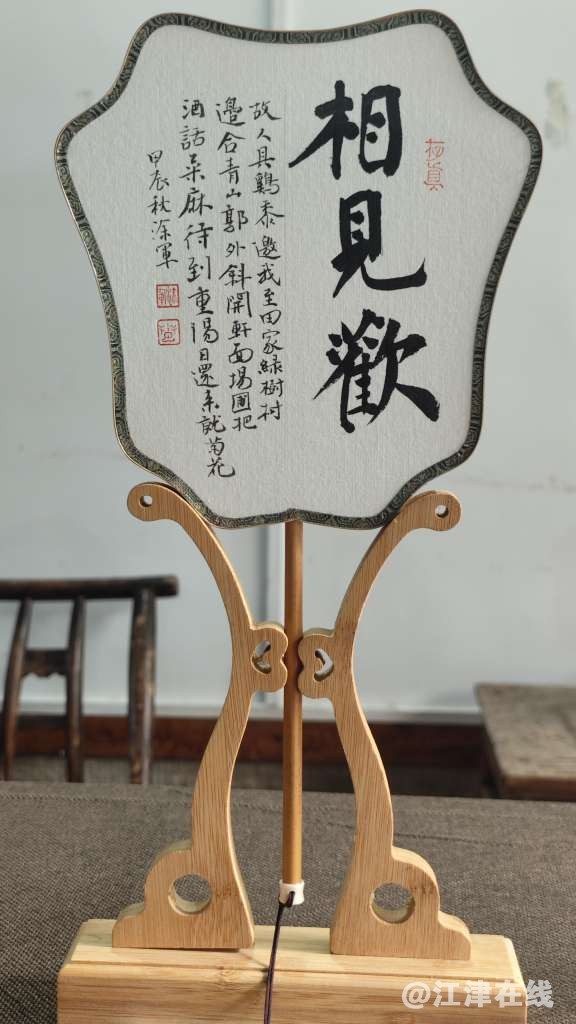 相見歡
故人具鷄黍邀我至田家緑樹村
邊合青山郭外斜開軒面場圃把
酒話桒麻待到重陽日還来就菊花
甲辰秋軍
@江津在线